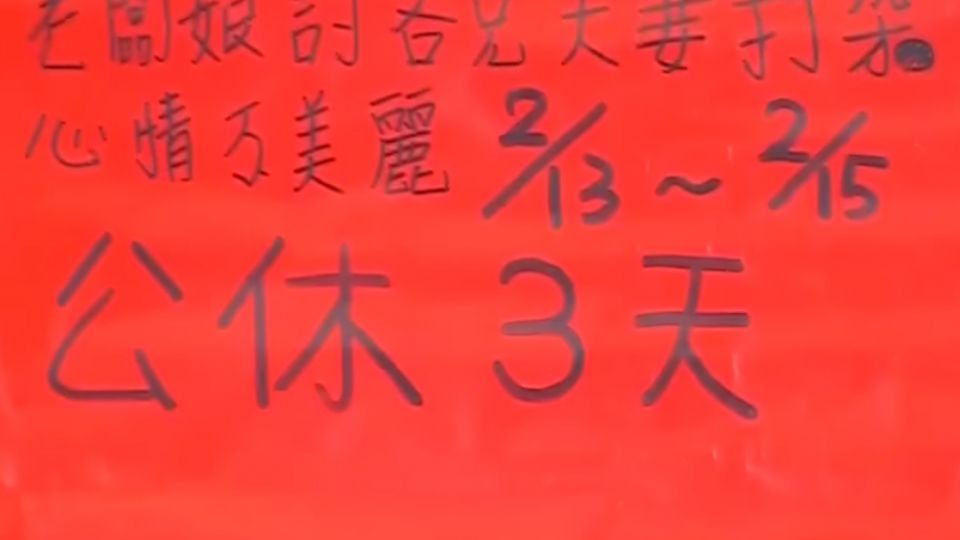 老闆娘討客兄夫妻打架
心情万美麗 2/13~2/15
公休3天